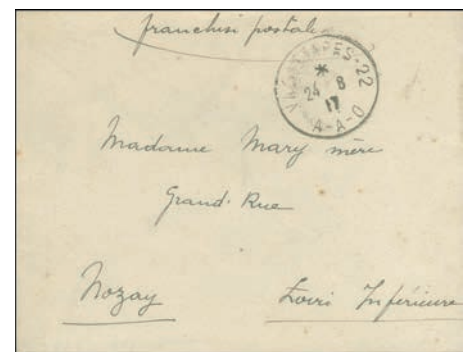 franchise postale
24 8
17
A-A-O
Madame Mary mère
Grand-Rue
Nozay
Loire Inférieure